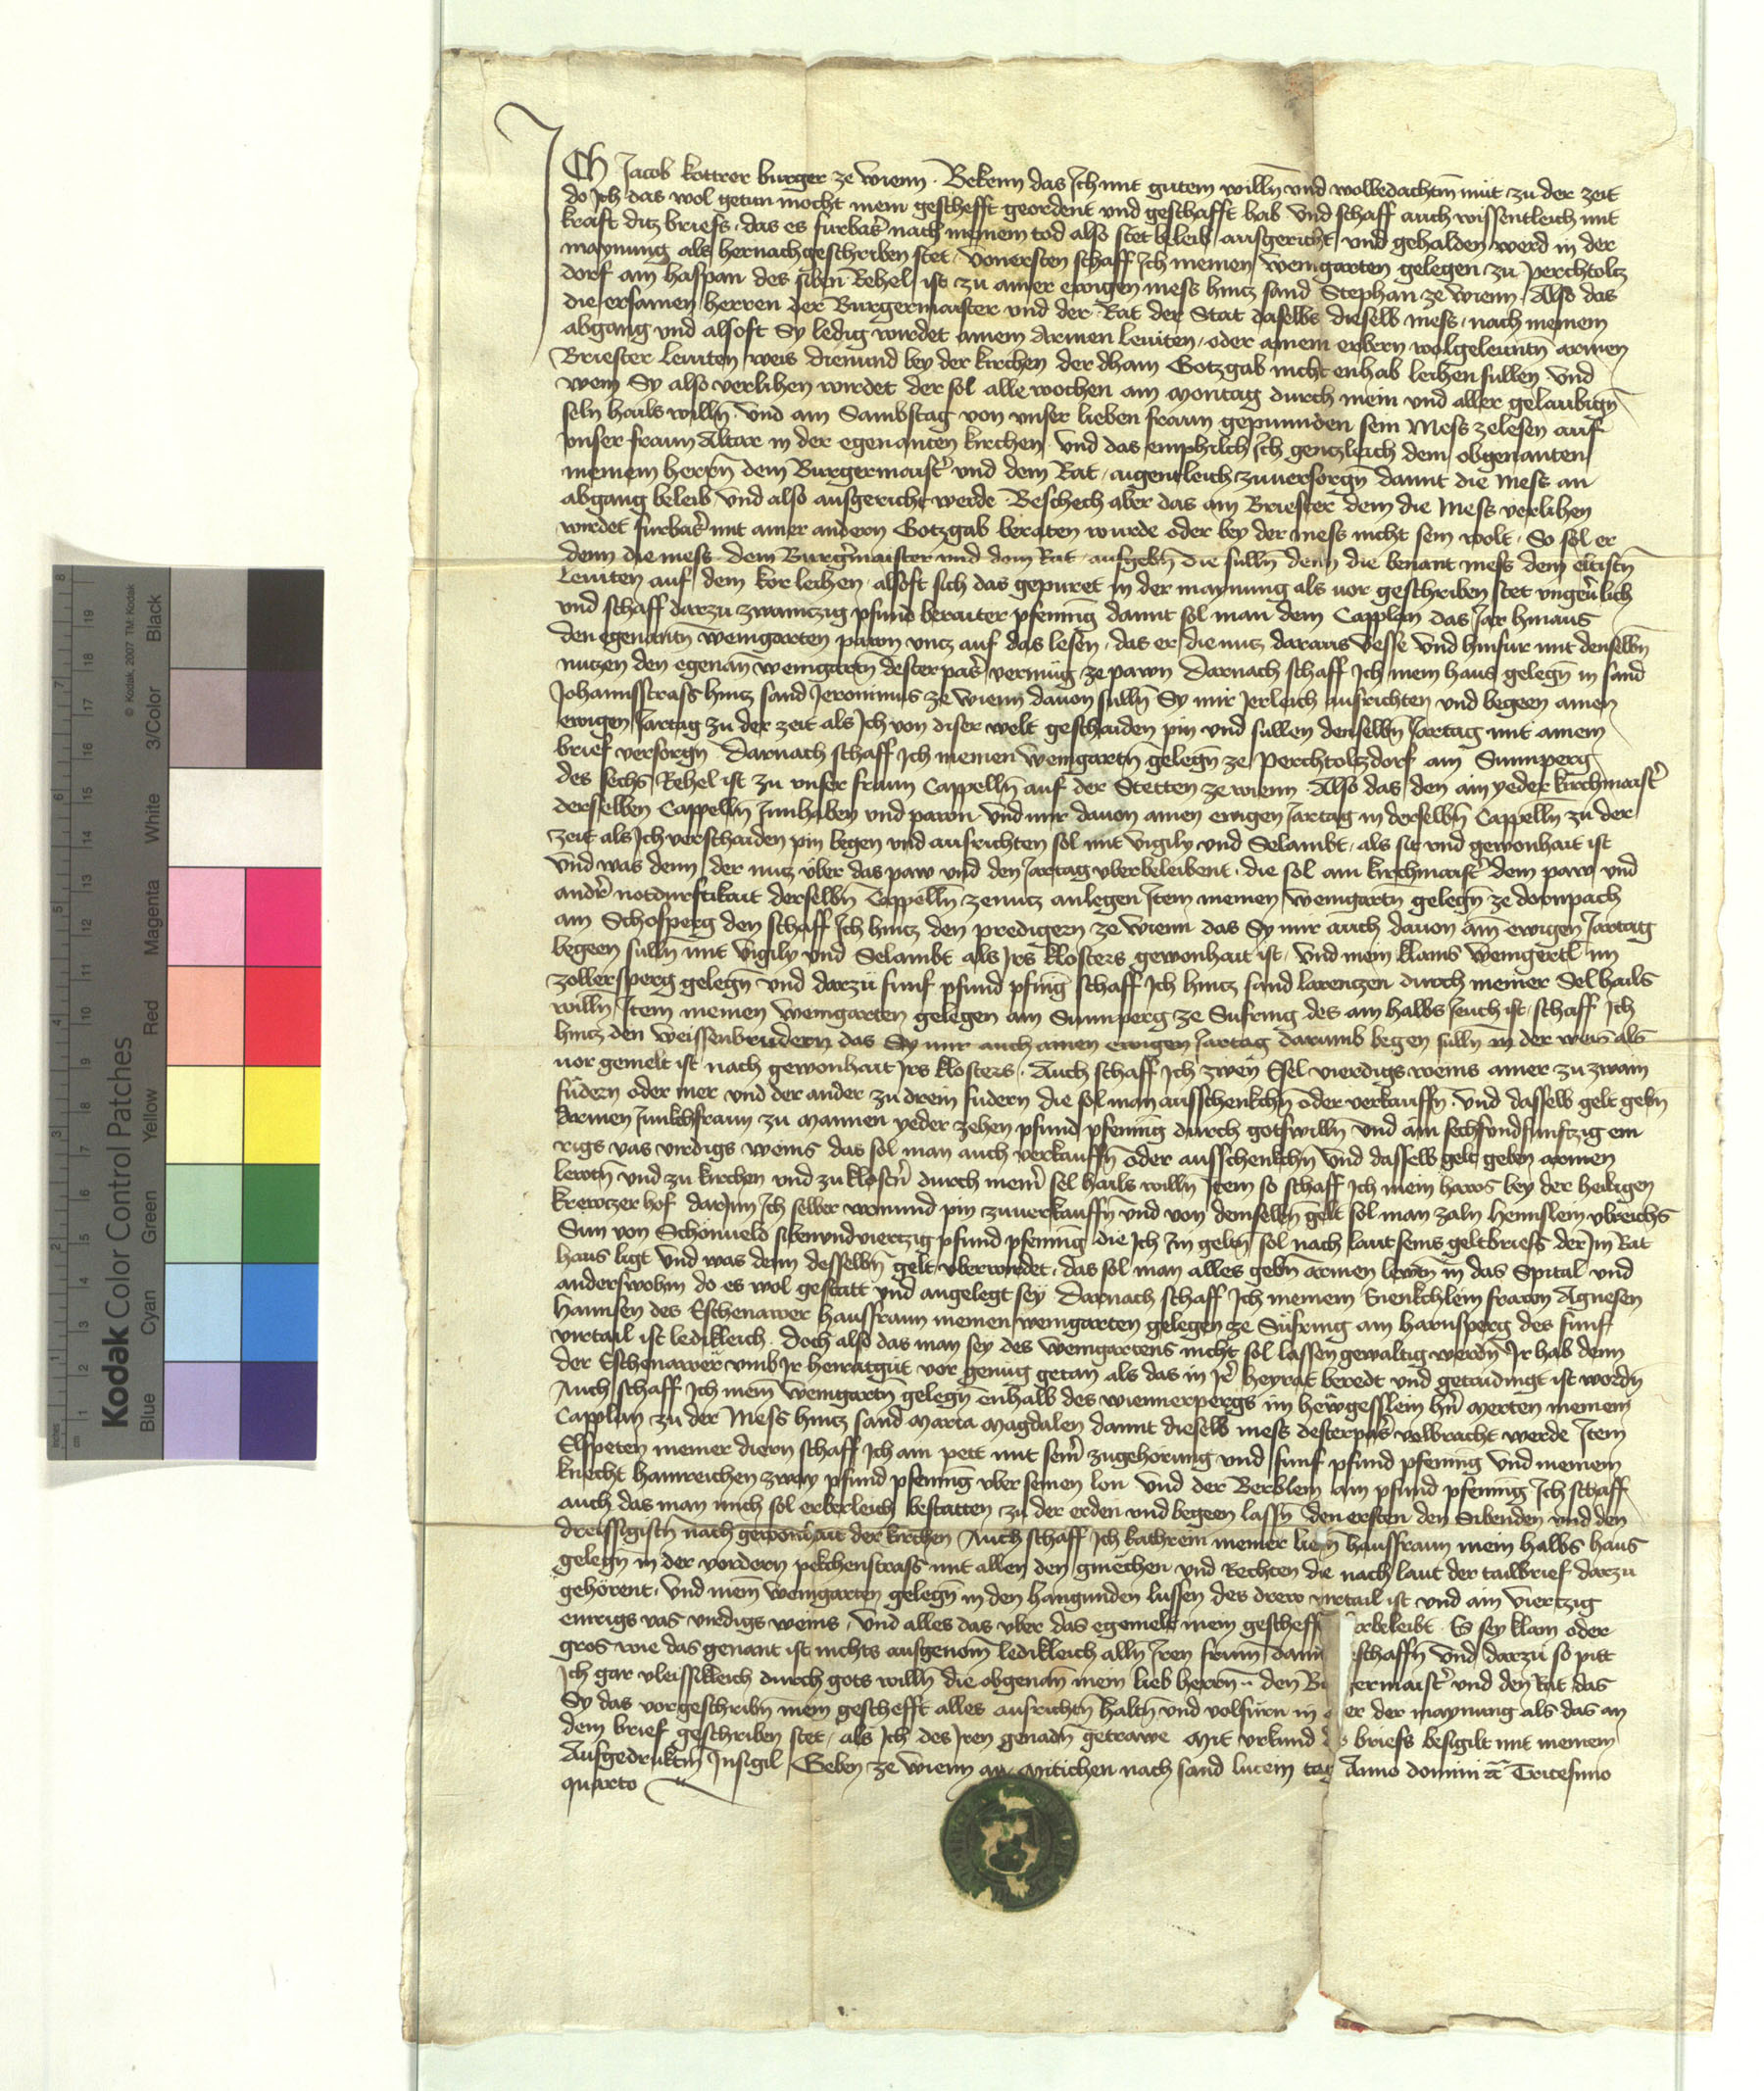 ICh Jacob kottrer burger ze wienn Bekenn das Ich mit gutem willn̄ und wolbedachtm̄ mut zu der zeit
do Ich das wol getun mocht mein gescheft geordent und geschafft hab Und schaff auch wissentleich mit
kraft ditz briefs das es furbaz nach meinem tod also stet beleib ausgericht und gehalden werd in der
maynung als hernachgeschriben stet Vonersten schaff Ich meinen weingarten gelegen zu Perchtoltz
dorf am haspan des siben Rehel ist zu ainer ewigen mess hintz sand Stephan ze wienn Also das
die ersamen herren der Burgermaister und der Rat der Stat daselbs dieselb mess nach meinem
abgang und alsoft Sy ledig wirdet ainem Armen leuiten oder ainem erbern wolgeleuntn̄ armen
Briester leuiten weis diemind bey der kirchen der dhain Gotzgab nicht enhab leihen sullen Und
wem Sy also verlihen wirdet der sol alle wochen am Montag durch mein und aller gelaubign̄
seln hails willn̄ und am Sambstag von unser lieben fraun gepunnden sein Mess zelesen auf
unser fraun Altar in der egenanten kirchen Und das emphilch Ich gentzleich dem obgenanten
meinem herrn̄ dem Burgermaistr̄ und dem Rat aigentleich zuuersorgn̄ damit die Mess an
abgang beleib und also ausgericht werde Beschech aber das ain Briester dem die Mess verlihen
wirdet furbaz mit ainer andern Gotzgab beraten wurde oder bey der mess nicht sein wolt So sol er
denn die mess dem Burgr̄maister und dem Rat aufgebn̄ die sulln̄ denn die benant mess dem eltistn̄
Leuiten auf dem kor leihen alsoft sich das gepuret in der maynung als uor geschriben stet ungeu̅lich
und schaff darzu zwaintzig phund beraiter phening damit sol man dem Capplan das Jar hinaus
den egenantn̄ weingarten pawn untz auf das lesen das er die nutz daraus vesse Und hinfur mit denselbn̄
nutzen den egenan̄ weingartn̄ desterpas vermug ze pawn Darnach schaff Ich mein haus gelegn̄ in sand
Johannsstrass hintz sand Jeronimus ze wienn dauon sulln̄ Sy mir Jerleich ausrichten und begeen ainen
ewigen Jartag zu der zeit als Ich von diser welt geschaiden pin und sullen denselbn̄ Jartag mit ainem
brief versorgn̄ Darnach schaff Ich meinen weingartn̄ gelegn̄ ze Perchtoltzdorf am Sunnperg
des sechs Rehel ist zu unser fraun Cappelln̄ auf der Stetten ze wienn Also das den ain yeder kirchmaistr̄
derselben Cappelln̄ Innhaben und pawn Und mir dauon ainen ewigen Jartag in derselbn̄ Cappelln̄ zu der
zeit als Ich verschaiden pin begen und ausrichten sol mit vigily und Selambt als sit und gewonhait ist
Und was denn der nutz uber das paw und den Jartag uberbeleibent die sol ain kirchmaistr̄ dem paw und
andr̄ notdurftikait derselbn̄ Cappelln̄ ze nutz anlegen Item meinen weingartn̄ gelegn̄ ze dornpach
am Schofperg den schaff Ich hintz den predigern ze wienn das Sy mir auch dauon ain̄ ewigen Jartag
begeen sulln̄ mit vigily und Selambt als Irs klosters gewonhait ist Und mein klains weingertl im
zollersperg gelegn̄ und darzu funf phund phēnig schaff Ich hintz sand larentzen durch meiner Sel hails
willn̄ Item meinen weingarten gelegen am Sunnperg ze Sufring des ain halbs Jeuch ist schaff Ich
hintz den weissenbrudern das Sy mir auch ainen ewigen Jartag darumb begen sulln̄ in der weis als
uor gemelt ist nach gewonhait Irs klosters Auch schaff Ich zwen Esel vierdigs weins ainer zu zwain
fudern oder mer und der ander zu drein fudern die sol man ausschenkchn̄ oder verkauffn̄ Und dasselb gelt gebn̄
Armen Junkchfraun zu Mannen yeder zehen phund phening durch gotswilln̄ Und ain sechsundfunftzig em
rigs vas virdigs weins das sol man auch verkauffn̄ oder ausschenkchn̄ Und dasselb gelt geben armen
lewtn̄ und zu kirchen und zu klostn̄ durch mein̄ sel hails willn̄ Item so schaff Ich mein haws bey der heiligen
krewtzer hof darInn Ich selber wonund pin zuuerkauffn̄ und von demselbn̄ gelt sol man zaln hennslein ulreichs
Sun von Schönueld sibenundviertzig phund phening die Ich Im geltn̄ sol nach laut seins geltbriefs der Im Rat
haus ligt Und was denn desselbn̄ gelt uberwirdet das sol man alles gebn̄ armen lewtn̄ in das Spital und
anderswohin do es wol gestatt und angelegt sey Darnach schaff Ich meinem Enenkchlein frawn Agnesen
hannsen des Eschenawer hausfraun meinen weingarten gelegen ze Sufring am harnsperg des funf
virtail ist ledikleich Doch also das man sey des weingartens nicht sol lassen gewaltig werdn̄ Ir hab denn
der Eschenawer umb Ir heiratgut vor genug getan als das in Ir̄ heyrat beredt und getaidingt ist wordn̄
Auch schaff Ich mein̄ weingartn̄ gelegn̄ enhalb des wiennerpergs im hewgesslein hn̄ Merten meinem
Capplan zu der Mess hintz sand Maria Magdalen damit dieselb mess desterpas volbracht werde Item
Elspeten meiner diern schaff Ich ain pett mit sein̄ zugehorung und funf phund phening Und meinem
knecht hainreichen zway phund phening uber seinen lon Und der Berblein ain phund phening Ich schaff
auch das man mich sol erberleich bestatten zu der erden und begeen lassn̄ den ersten den Sibenden und den
dreissigistn̄ nach gewonhait der kirchen Auch schaff Ich kathrein meiner liebn̄ hausfraun mein halbs haus
gelegn̄ in der vordern pekchenstrass mit allen den gmechen und Rechten die nach laut der tailbrief darzu
gehörent Und mein̄ weingarten gelegn̄ in den hangunden lussen des drew virtail ist und ain viertzig
emrigs vas virdigs weins Und alles das uber das egemelt mein gescheff erbeleibt Es sey klain oder
gros wie das genant ist nichts ausgenom̄ ledikleich alln̄ Iren frum̄ damit schaffn̄ Und darzu so pitt
Ich gar vleissikleich durch gots willn̄ die obgenan̄ mein lieb herrn̄ den Bu ermaistr̄ und den Rat das
Sy das vorgeschribn̄ mein gescheft alles ausrichen haltn̄ und volfurn in er der maynung als das an
dem brief geschriben stet als Ich des Iren genadn̄ getrawe Mit urkund briefs besigilt mit meinem
Aufgedruktm̄ Insigil Geben ze wienn an Mitichen nach sand lucein tag Anno domini rc̄ Tricesimo
quarto
Kodak Color Control Patches
© Kodak, 2007 TM: Kodak
Blue Cyan Green Yellow Red Magenta White 3/Color Black
inches 1 2 3 4 5 6 7 8
cm 1 2 3 4 5 6 7 8 9 10 11 12 13 14 15 16 17 18 19